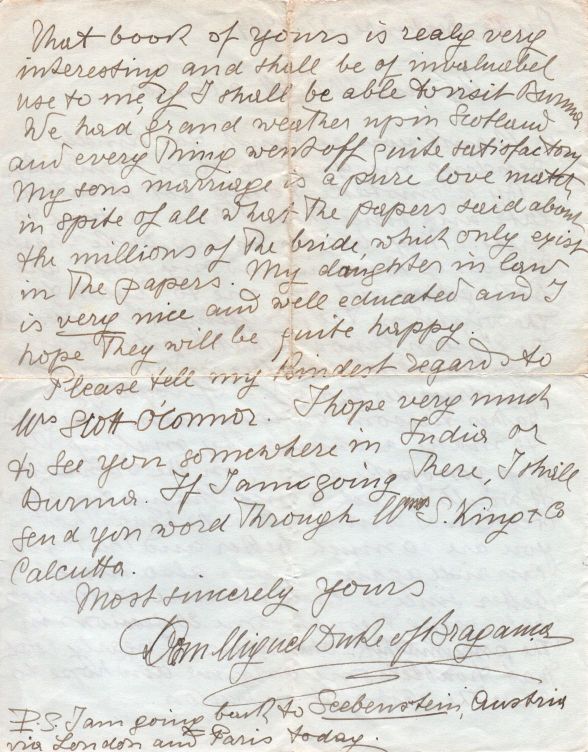 That book of yours is realy very
interesting and shall be of invaluabel
use to me, if I shall be able to visit Burma
We had grand weather up in Scotland
and every thing went off quite satisfactory
My sons marriage is a pure love match
in spite of all what the papers said about
the millions of the bride, which only exist
in the papers. My daughter in law
is very nice and well educated and I
hope they will be quite happy.
Please tell my kindest regards to
Mrs Scott O'Connor. I hope very much
to see you somewhere in India or
Burma. If I am going there, I shall
send you word through S. King & Co
Calcutta.
Most sincerely yours
Dom Miguel Duke of Braganza
P.S. I am going back to Seebenstein, Austria
via London and Paris today.